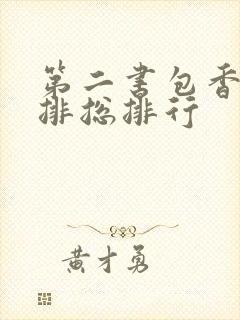 第二书包香
排总排行
黄才勇